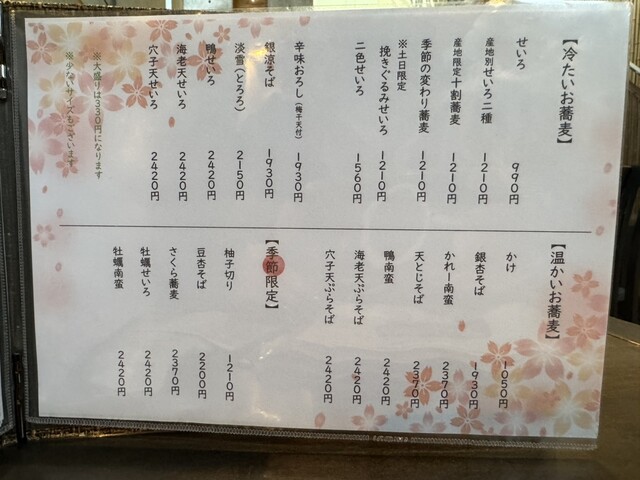 【冷たいお蕎麦】
せいろ 990円
産地別せいろ二種 1210円
産地限定十割蕎麦 1210円
季節の変わり蕎麦 1210円
※土日限定
挽きぐるみせいろ 1210円
二色せいろ 1560円
辛味おろし（梅子天付） 1930円
銀涼そば 1930円
淡雪（とろろ） 2150円
鴨せいろ 2420円
海老天せいろ 2420円
穴子天せいろ 2420円
※大盛りは330円になります
※少ないサイズもございます
【温かいお蕎麦】
かけ 1050円
銀杏そば 1930円
かれー南蛮 2370円
天とじそば 2370円
鴨南蛮 2420円
海老天ぷらそば 2420円
穴子天ぷらそば 2420円
【季節限定】
柚子切り 1210円
豆杏そば 2200円
さくら蕎麦 2370円
牡蠣せいろ 2420円
牡蠣南蛮 2420円